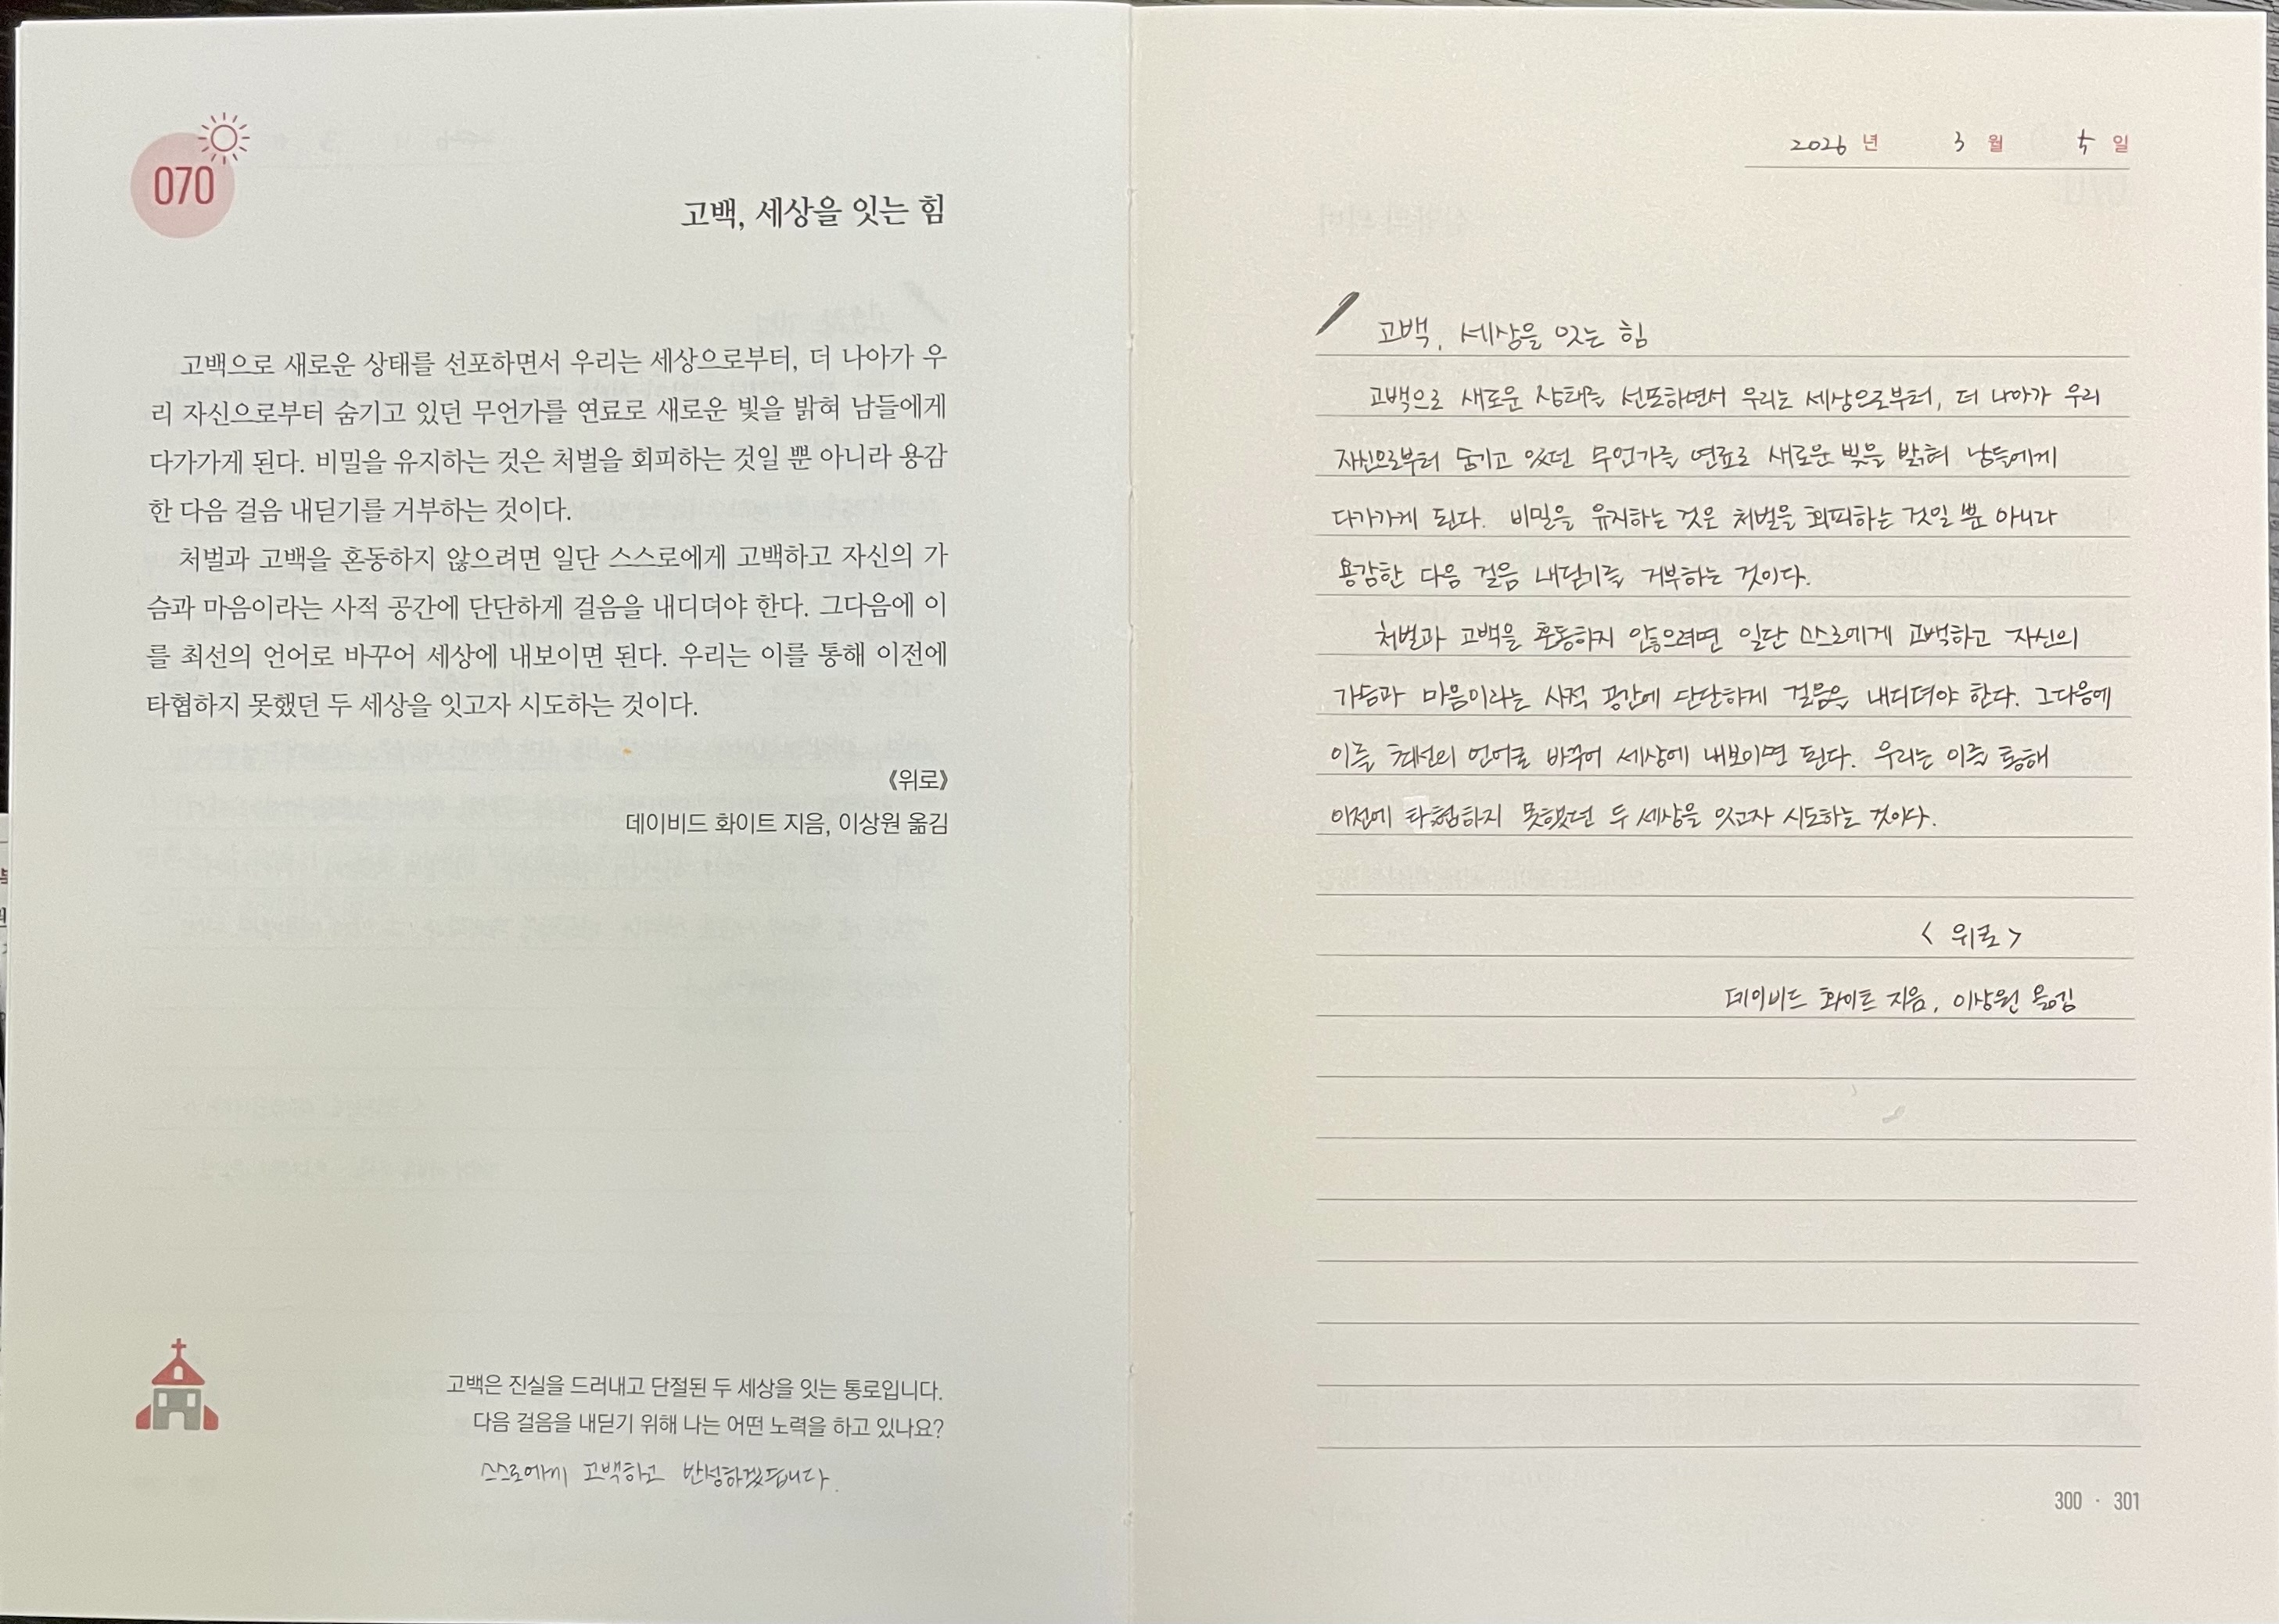 070
고백, 세상을 잇는 힘
고백으로 새로운 상태를 선포하면서 우리는 세상으로부터, 더 나아가 우
리 자신으로부터 숨기고 있던 무언가를 연료로 새로운 빛을 밝혀 남들에게
다가가게 된다. 비밀을 유지하는 것은 처벌을 회피하는 것일 뿐 아니라 용감
한 다음 걸음 내딛기를 거부하는 것이다.
처벌과 고백을 혼동하지 않으려면 일단 스스로에게 고백하고 자신의 가
슴과 마음이라는 사적 공간에 단단하게 걸음을 내디뎌야 한다. 그다음에 이
를 최선의 언어로 바꾸어 세상에 내보이면 된다. 우리는 이를 통해 이전에
타협하지 못했던 두 세상을 잇고자 시도하는 것이다.
《위로》
데이비드 화이트 지음, 이상원 옮김
고백은 진실을 드러내고 단절된 두 세상을 잇는 통로입니다.
다음 걸음을 내딛기 위해 나는 어떤 노력을 하고 있나요?
스스로에게 고백하고 반성하겠습니다.
2026 년 3 월 5 일
고백, 세상을 잇는 힘
고백으로 새로운 상태를 선포하면서 우리는 세상으로부터, 더 나아가 우리
자신으로부터 숨기고 있던 무언가를 연료로 새로운 빛을 밝혀 남들에게
다가가게 된다. 비밀을 유지하는 것은 처벌을 회피하는 것일 뿐 아니라
용감한 다음 걸음 내딛기를 거부하는 것이다.
처벌과 고백을 혼동하지 않으려면 일단 스스로에게 고백하고 자신의
가슴과 마음이라는 사적 공간에 단단하게 걸음을 내디뎌야 한다. 그다음에
이를 최선의 언어로 바꾸어 세상에 내보이면 된다. 우리는 이를 통해
이전에 타협하지 못했던 두 세상을 잇고자 시도하는 것이다.
< 위로 >
데이비드 화이트 지음, 이상원 옮김
300 · 301